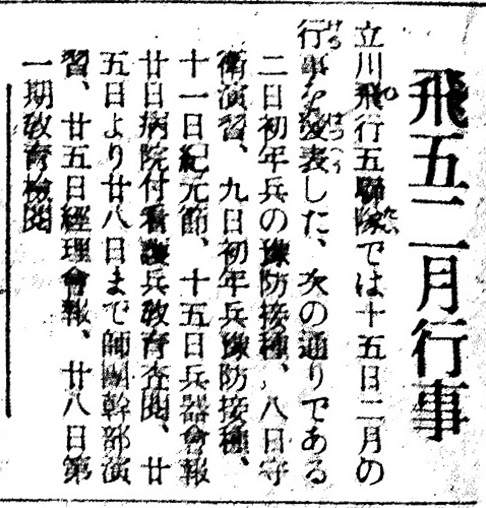 飛五二月行事
立川飛行五聯隊では十五日二月の
行事を發表した、次の通りである
二日初年兵の豫防接種、八日守
衛演習、九日初年兵豫防接種、
十一日紀元節、十五日兵器會報
廿日病院付看護兵敎育査閲、廿
五日より廿八日まで師團幹部演
習、廿五日經理會報、廿八日第
一期敎育檢閲